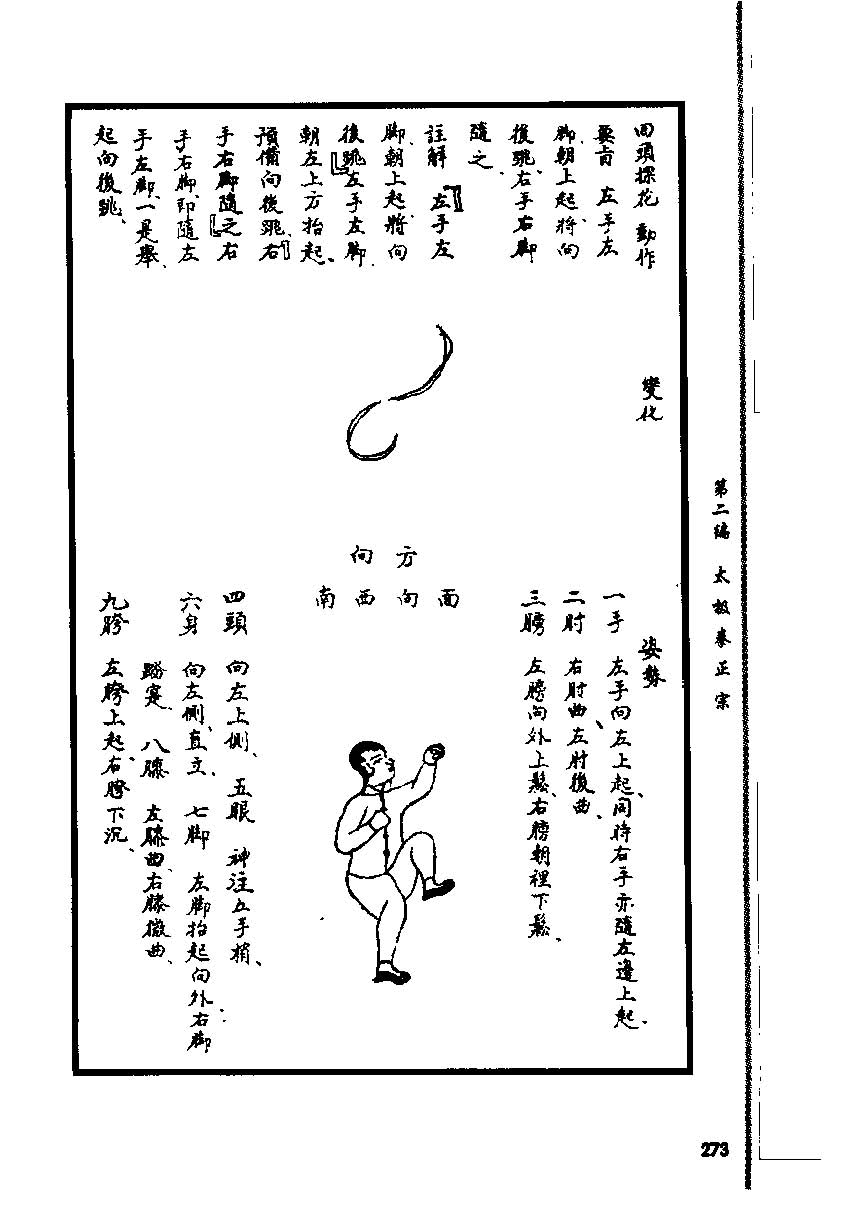 回頭探花 動作
要言 左手左
脚、朝上起、將向
後跳、右手右脚
隨之、
註解 「左手左
脚、朝上起、將向
後跳」左手左脚、
朝左上方抬起、
預備向後跳、「右
手右脚隨之」右
手右脚、即隨左
手左脚、一是舉、
起向後跳、
變化
方向
面向西南
姿勢
一手 左手向左上起、同時右手亦隨左邊上起、
二肘 右肘曲、左肘後曲、
三膀 左膀向外上鬆、右膀朝裡下鬆、
四頭 向左上側、 五眼 神注左手梢、
六身 向左側、直立、 七脚 左脚抬起向外、右脚
踏寔、 八膝 左膝曲、右膝微曲、
九胯 左胯上起、右胯下沉、
第二編 太极拳正宗
273